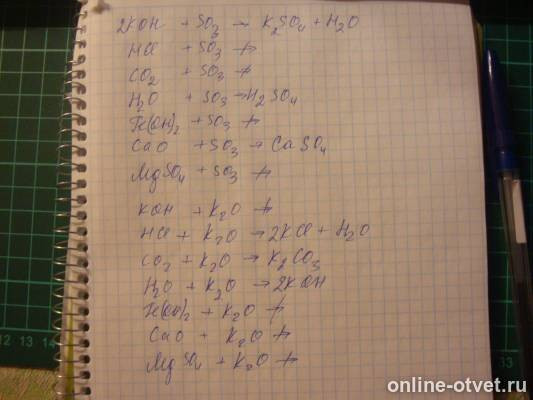 2KOH + SO3 → K2SO4 + H2O
HCl + SO3 ↛
CO2 + SO3 ↛
H2O + SO3 → H2SO4
Fe(OH)2 + SO3 ↛
CaO + SO3 → CaSO4
MgSO4 + SO3 ↛
KOH + K2O ↛
HCl + K2O → 2KCl + H2O
CO2 + K2O → K2CO3
H2O + K2O → 2KOH
Fe(OH)2 + K2O ↛
CaO + K2O ↛
MgSO4 + K2O ↛
12 13 14
33
online-otvet.ru